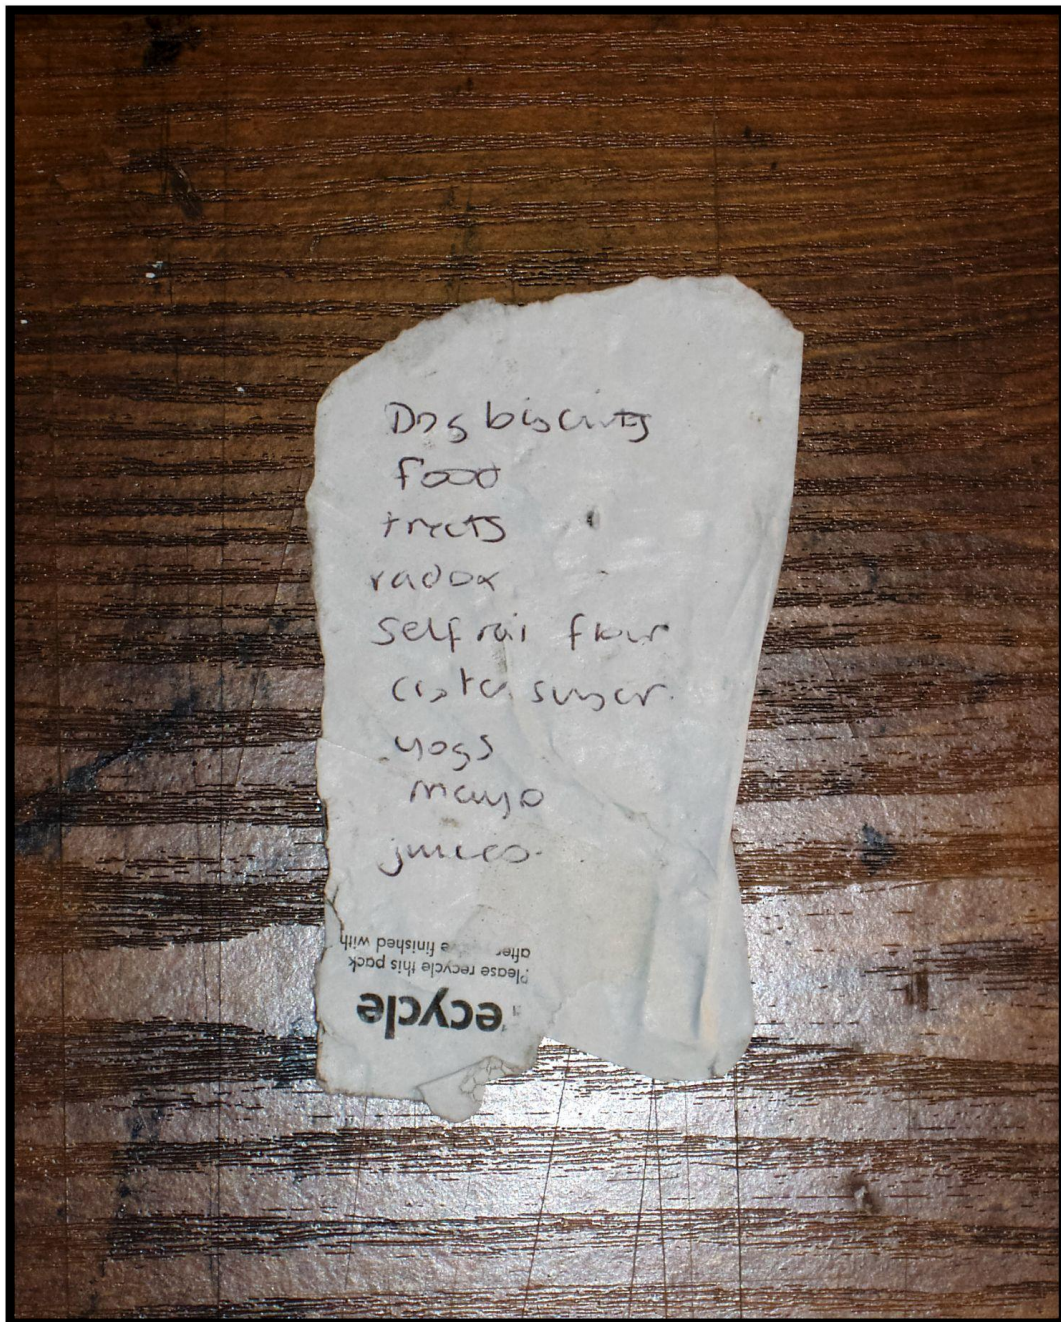 Dog biscuits
food
treats
radox
self rai flour
caster sugar.
yogs
mayo
juices.
ecycle
Please recycle this pack
after finished with